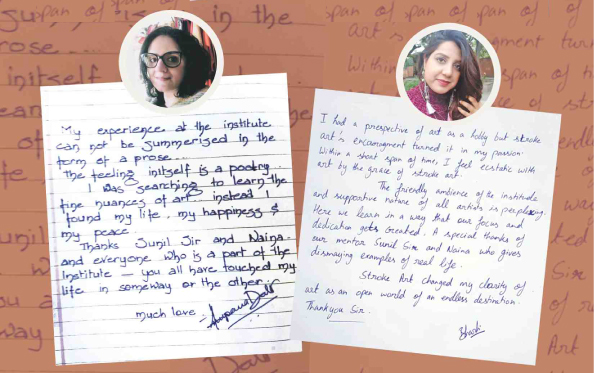 My experience at the institute
can not be summerised in the
form of a prose...
The feeling initself is a poetry...
I was searching to learn the
fine nuances of art.. instead I
found my life, my happiness &
my peace.
Thanks Sunil Sir and Naina
and everyone who is a part of the
Institute — you all have touched my
life in someway or the other...
much love..
I had a prespective of art as a hobby but stroke
art's encouragment turned it in my passion.
Within a short span of time, I feel ecstatic with
art by the grace of stroke art.
The friendly ambience of the institude
and supportive nature of all artists is perplexing.
Here we learn in a way that our focus and
dedication gets created. A special thanks of
our mentor Sunil Sir and Naina who gives
dismaying examples of real life.
Stroke Art changed my clearity of
art as an open world of an endless destination.
Thankyou Sir.